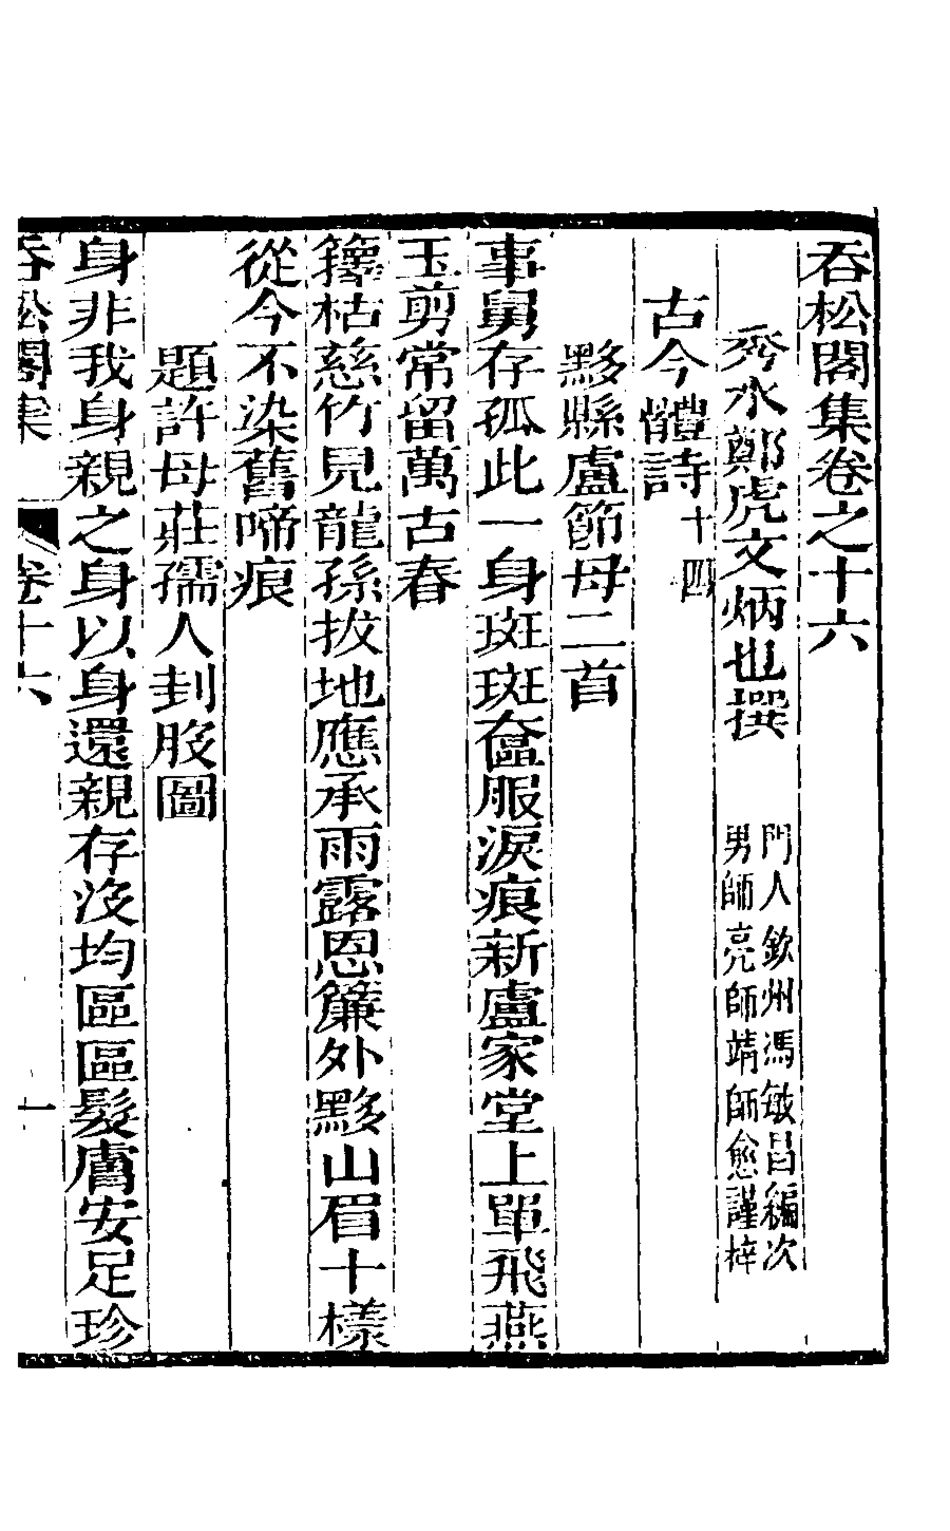 吞松閣集卷之十六
秀水鄭虎文炳也撰
門人欽州馮敏昌編次
男師亮師靖師愈謹梓
古今體詩十四
黟縣盧節母二首
事舅存孤此一身斑斑奩服淚痕新盧家堂上單飛燕
玉剪常留萬古春
籜枯慈竹見龍孫拔地應承雨露恩簾外黟山眉十樣
從今不染舊啼痕
題許母莊孺人刲股圖
身非我身親之身以身還親存沒均區區髮膚安足珍
吞松閣集 卷十六 一